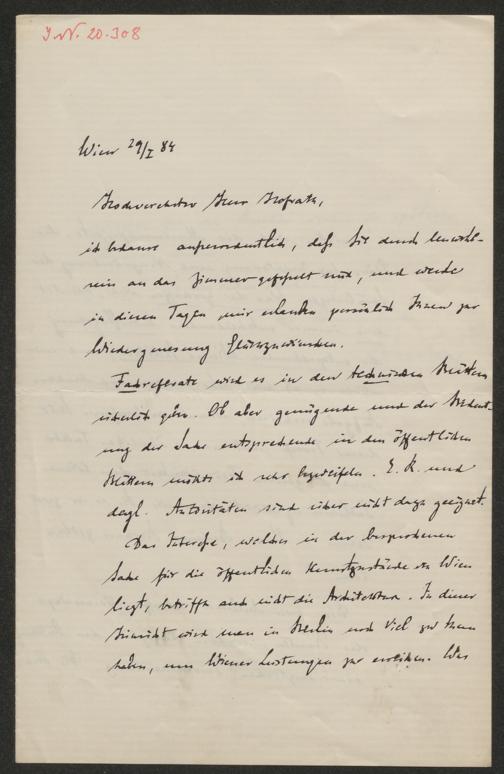 I.N. 20.308
Wien 29/I 84
Hochverehrter Herr Hofrath,
ich bedaure außerordentlich, daß Sie durch Unwohl-
sein an das Zimmer gefesselt sind, und werde
in diesen Tagen mir erlauben persönlich Ihnen zur
Wiedergenesung Glückzuwünschen.
Fachreferate wird es in den technischen Blättern
sicherlich geben. Ob aber genügende und der Bedeut-
ung der Sache entsprechende in den öffentlichen
Blättern möchte ich sehr bezweifeln. E. R. und
dergl. Autoritäten sind sicher nicht dazu geeignet.
Das Interesse, welches in der besprochenen
Sache für die öffentlichen Kunstzustände in Wien
liegt, betrifft auch nicht die Architektur. In dieser
Hinsicht wird man in Berlin noch viel zu thun
haben, um Wiener Leistungen zu erreichen. Was